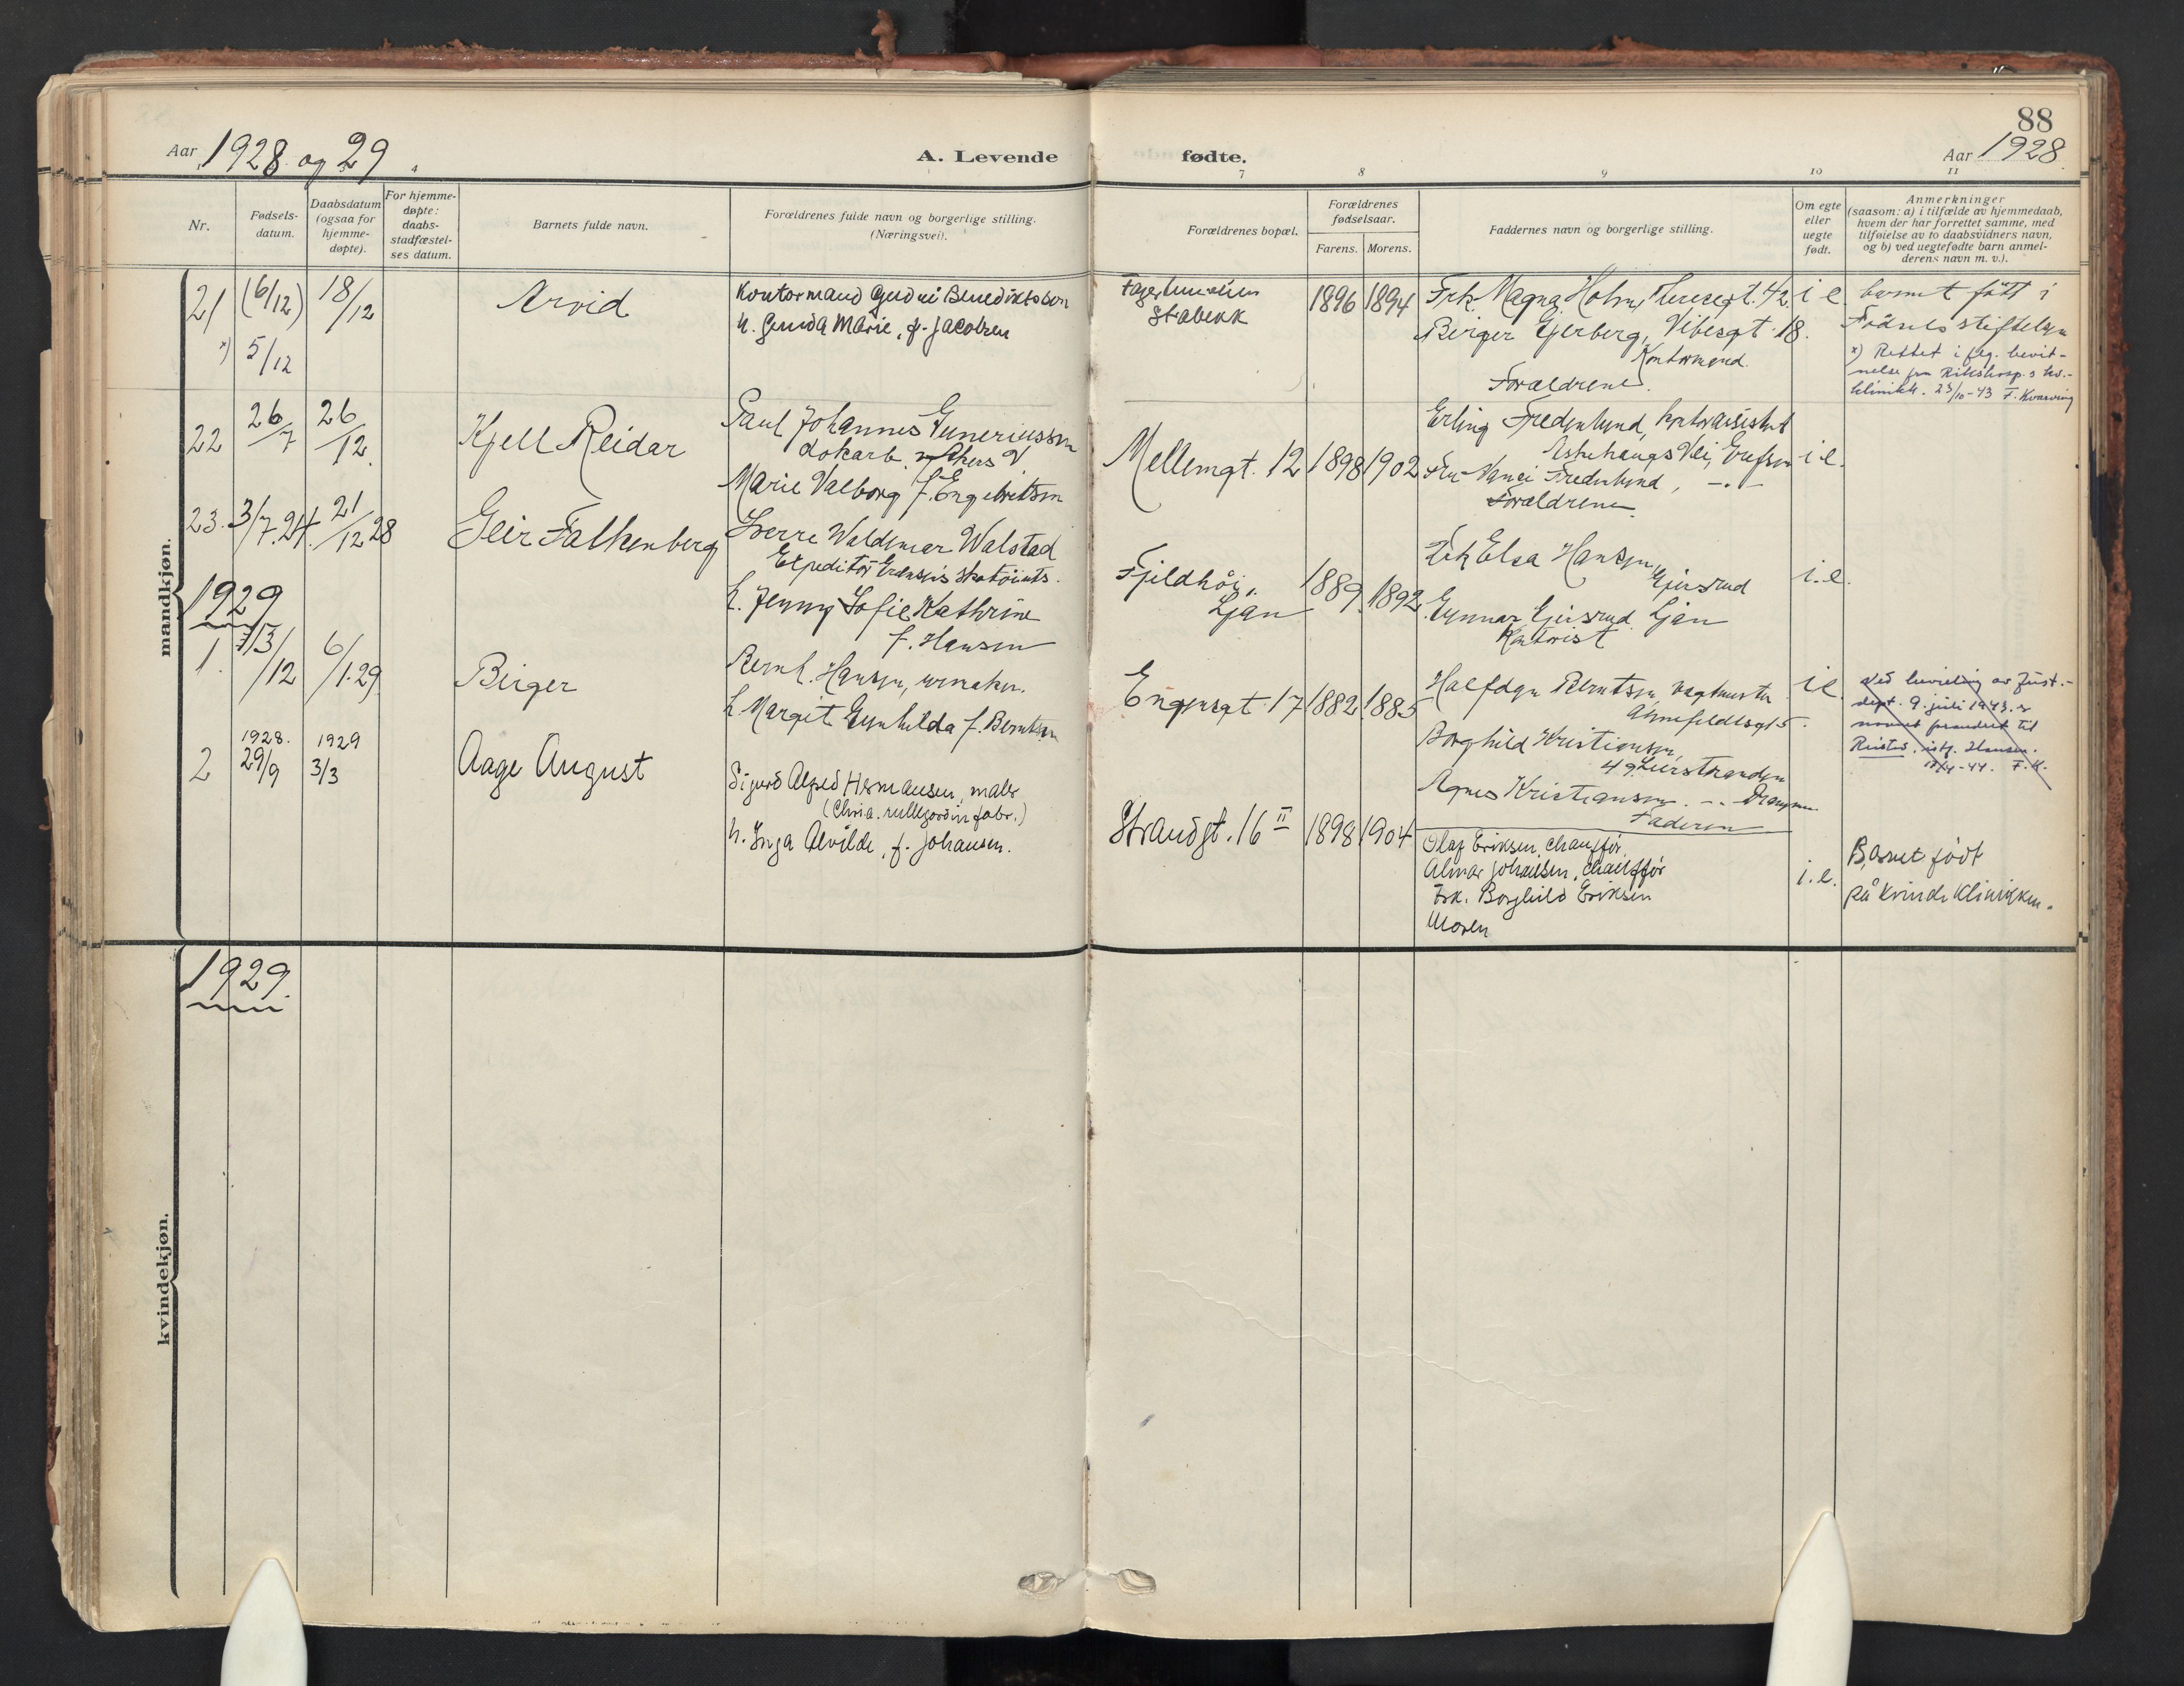 88
Aar 1928 og 29
A. Levende fødte.
Aar 1928
4 7 8 9 10 11
Nr.
Fødsels-
datum.
Daabsdatum
(ogsaa for
hjemme-
døpte).
For hjemme-
døpte:
daabs-
stadfæstel-
ses datum.
Barnets fulde navn.
Forældrenes fulde navn og borgerlige stilling.
(Næringsvei).
Forældrenes bopæl.
Forældrenes
fødselsaar.
Farens. Morens.
Faddernes navn og borgerlige stilling.
Om egte
eller
uegte
født.
Anmerkninger
(saasom: a) i tilfælde av hjemmedaab,
hvem der har forrettet samme, med
tilføielse av to daabsvidners navn,
og b) ved uegtefødte barn anmel-
derens navn m. v.).
mandkjøn.
21 (6/12) 18/12
x) 5/12
Arvid
Kontormand Gudni Benediktsson
h. Gunda Marie, f. Jacobsen
Stabekk
1896 1894
Frk. Magna Holm, Theresegt. 42
Birger Gjerberg, Vibesgt. 18.
Kontormand.
Forældrene.
i e.
barnet født i
Fødselsstiftelsen
x) Rettet i flg. bevit-
nelse fra Rikshosp.s kv.-
klinikk. 23/10-43 F. Kvasving
22 26/7 26/12
Kjell Reidar
Paul Johannes Guneriussen
Lokarb. v/Akers V
Marie Valborg f. Engebretsen
Mellemgt. 12
1898 1902
Erling Fredenlund, kontorassistent
Askehaugs Vei, Grefsen
Fru Vanci Fredenlund, -.-
Forældrene
i e.
23. 3/7.24. 21/12 28
Geir Falkenberg
Sverre Waldemar Walstad
Expeditør Grænsens Skotøiuts.
h. Jenny Sofie Kathrine
f. Hansen
Fjeldhøi,
Ljan
1889 1892
Frk Elsa Hansen,
Gjersrud
Gunnar Gjersrud Ljan
Kontorist
i.e.
1929
1. 13/12 6/1.29
Birger
Bernh. Hansen, urmaker.
h. Margit Gunhilda f. Berntsen
Engensgt. 17
1882 1885
Halfdan Berntsen, vagtmester
Ahnefeldtsgt 5.
Borghild Kristiansen,
49 Lierstranden
Agnes Kristiansen. -.- Drammen
Faderen
i e.
Ved bevilling av Just.-
dept. 9. juli 1943. er
navnet forandret til
Ristad, istf. Hansen.
F.K.
2 1928. 29/9 1929 3/3
Aage August
Sigurd Alfred Hermansen, maler
(Chria. rullegardin fabr.)
h. Inga Alvilde, f. Johansen.
Strandgt. 16 II
1898 1904
Olaf Eriksen, chauffør
Almar Johansen, chauffør
Frk. Borghild Eriksen
Moren
i.e.
Barnet født
på Kvinde Klinikken.
kvindekjøn.
1929